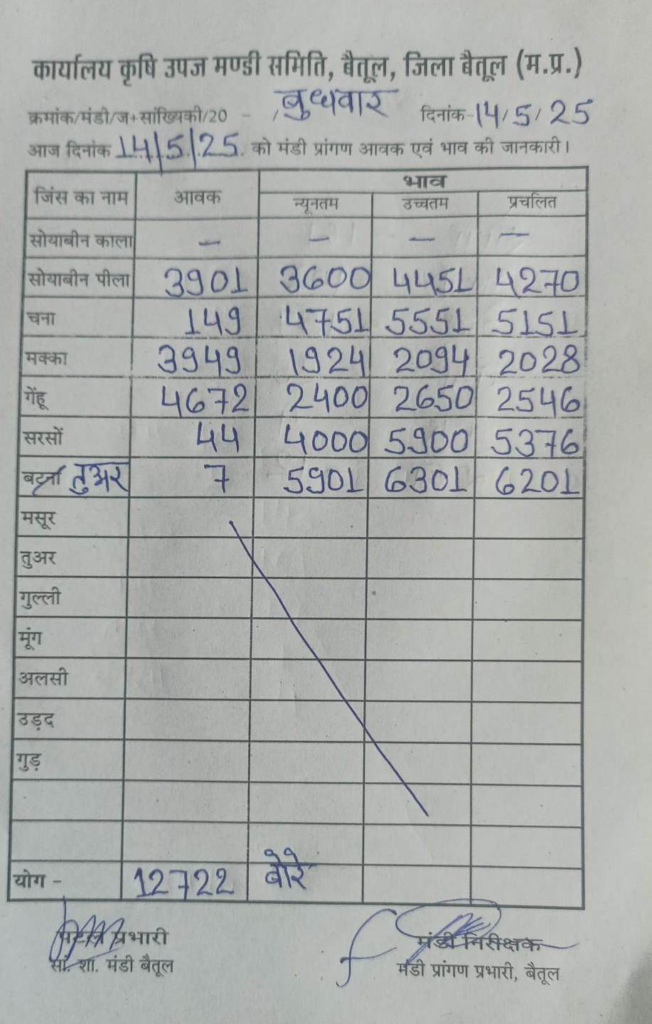 कार्यालय कृषि उपज मण्डी समिति, बैतूल, जिला बैतूल (म.प्र.)
क्रमांक/मंडी/ज+सांख्यिकी/20 - बुधवार दिनांक-14/5/25
आज दिनांक 14/5/25. को मंडी प्रांगण आवक एवं भाव की जानकारी।
जिंस का नाम आवक भाव
न्यूनतम उच्चतम प्रचलित
सोयाबीन काला — — — —
सोयाबीन पीला 3901 3600 4451 4270
चना 149 4751 5551 5151
मक्का 3949 1924 2094 2028
गेंहू 4672 2400 2650 2546
सरसों 44 4000 5900 5376
बटना तुअर 7 5901 6301 6201
मसूर
तुअर
गुल्ली
मूंग
अलसी
उड़द
गुड़
योग - 12722 बोरे
प्रभारी मंडी निरीक्षक
सां. शा. मंडी बैतूल मंडी प्रांगण प्रभारी, बैतूल